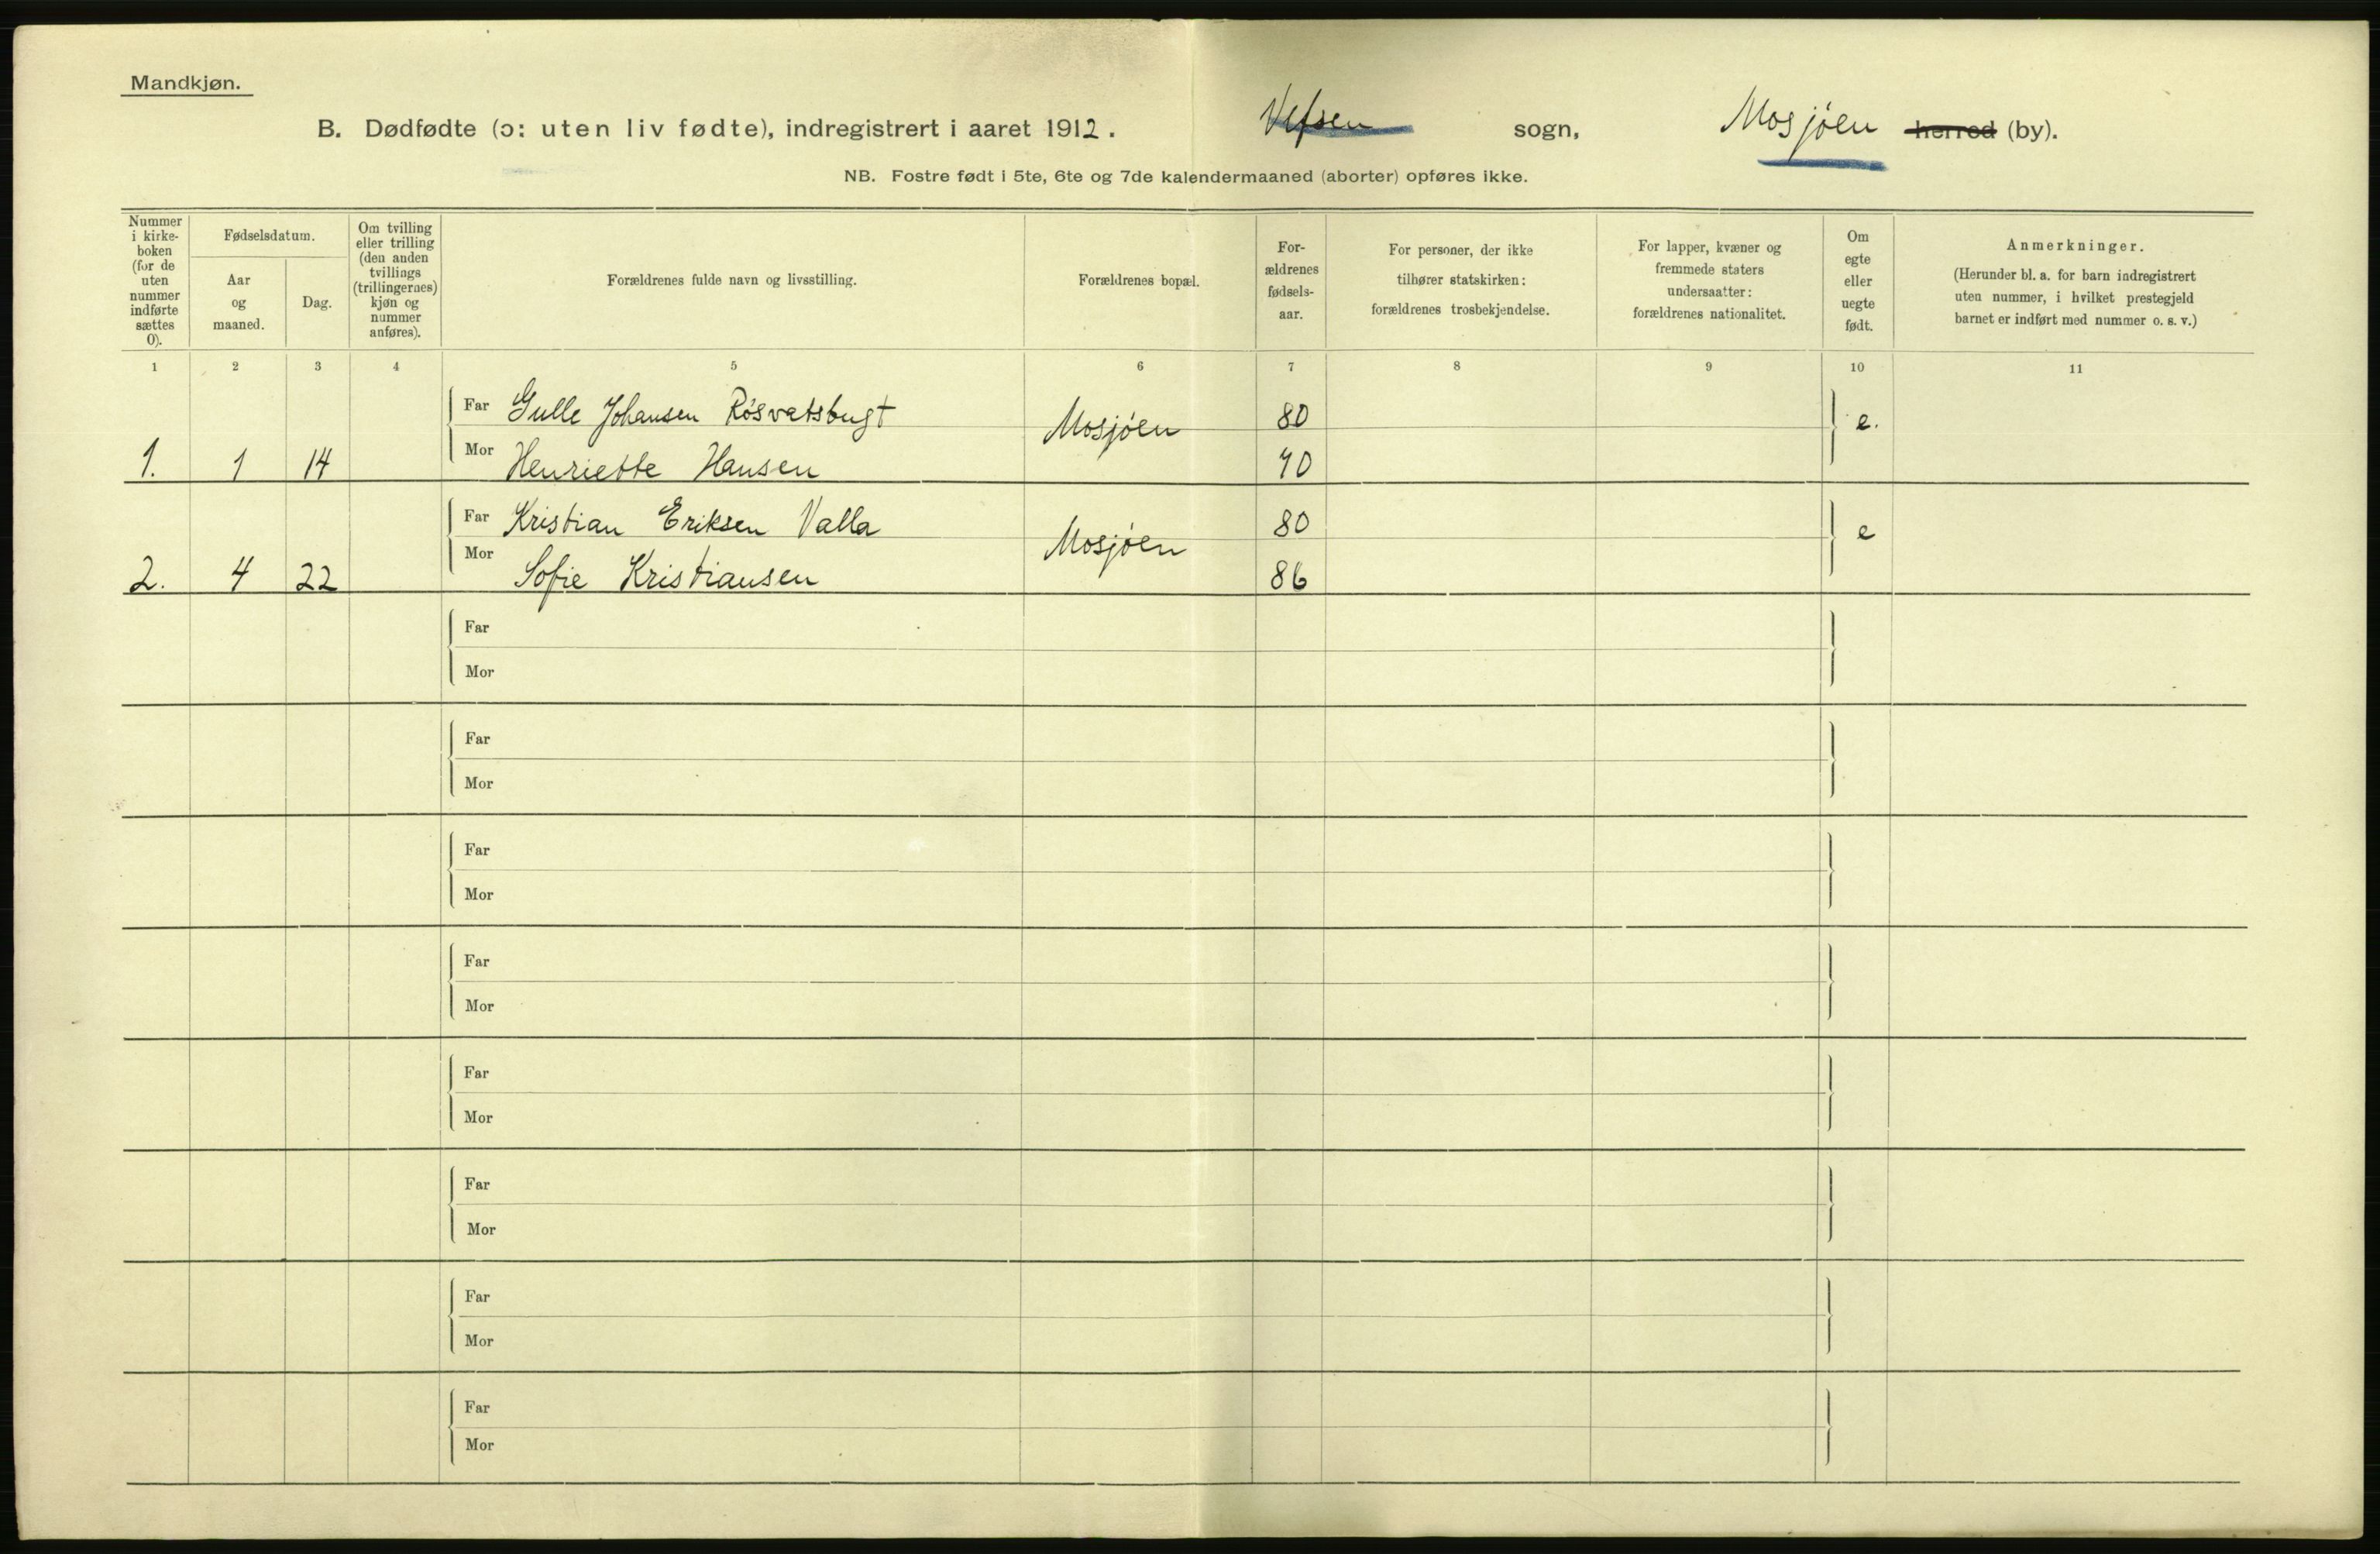 Mandkjøn.
B. Dødfødte (ɔ: uten liv fødte), indregistrert i aaret 1912. Vefsen sogn, Mosjöen herred (by).
NB. Fostre født i 5te, 6te og 7de kalendermaaned (aborter) opføres ikke.
Nummer
i kirke-
boken
(for de
uten
nummer
indførte
sættes
0).
Fødselsdatum.
Aar
og
maaned.
Dag.
Om tvilling
eller trilling
(den anden
tvillings
(trillingernes)
kjøn og
nummer
anføres).
Forældrenes fulde navn og livsstilling.
Forældrenes bopæl.
For-
ældrenes
fødsels-
aar.
For personer, der ikke
tilhører statskirken:
forældrenes trosbekjendelse.
For lapper, kvæner og
fremmede staters
undersaatter:
forældrenes nationalitet.
Om
egte
eller
uegte
født.
Anmerkninger.
(Herunder bl. a. for barn indregistrert
uten nummer, i hvilket prestegjeld
barnet er indført med nummer o. s. v.)
1 2 3 4 5 6 7 8 9 10 11
Far Gulle Johansen Rösvatsbugt Mosjöen 80 e.
1. 1 14 Mor Henriette Hansen
Far Kristian Eriksen Valla Mosjöen 80 e
2. 4 22 Mor Sofie Kristiansen 86
Far
Mor
Far
Mor
Far
Mor
Far
Mor
Far
Mor
Far
Mor
Far
Mor
Far
Mor